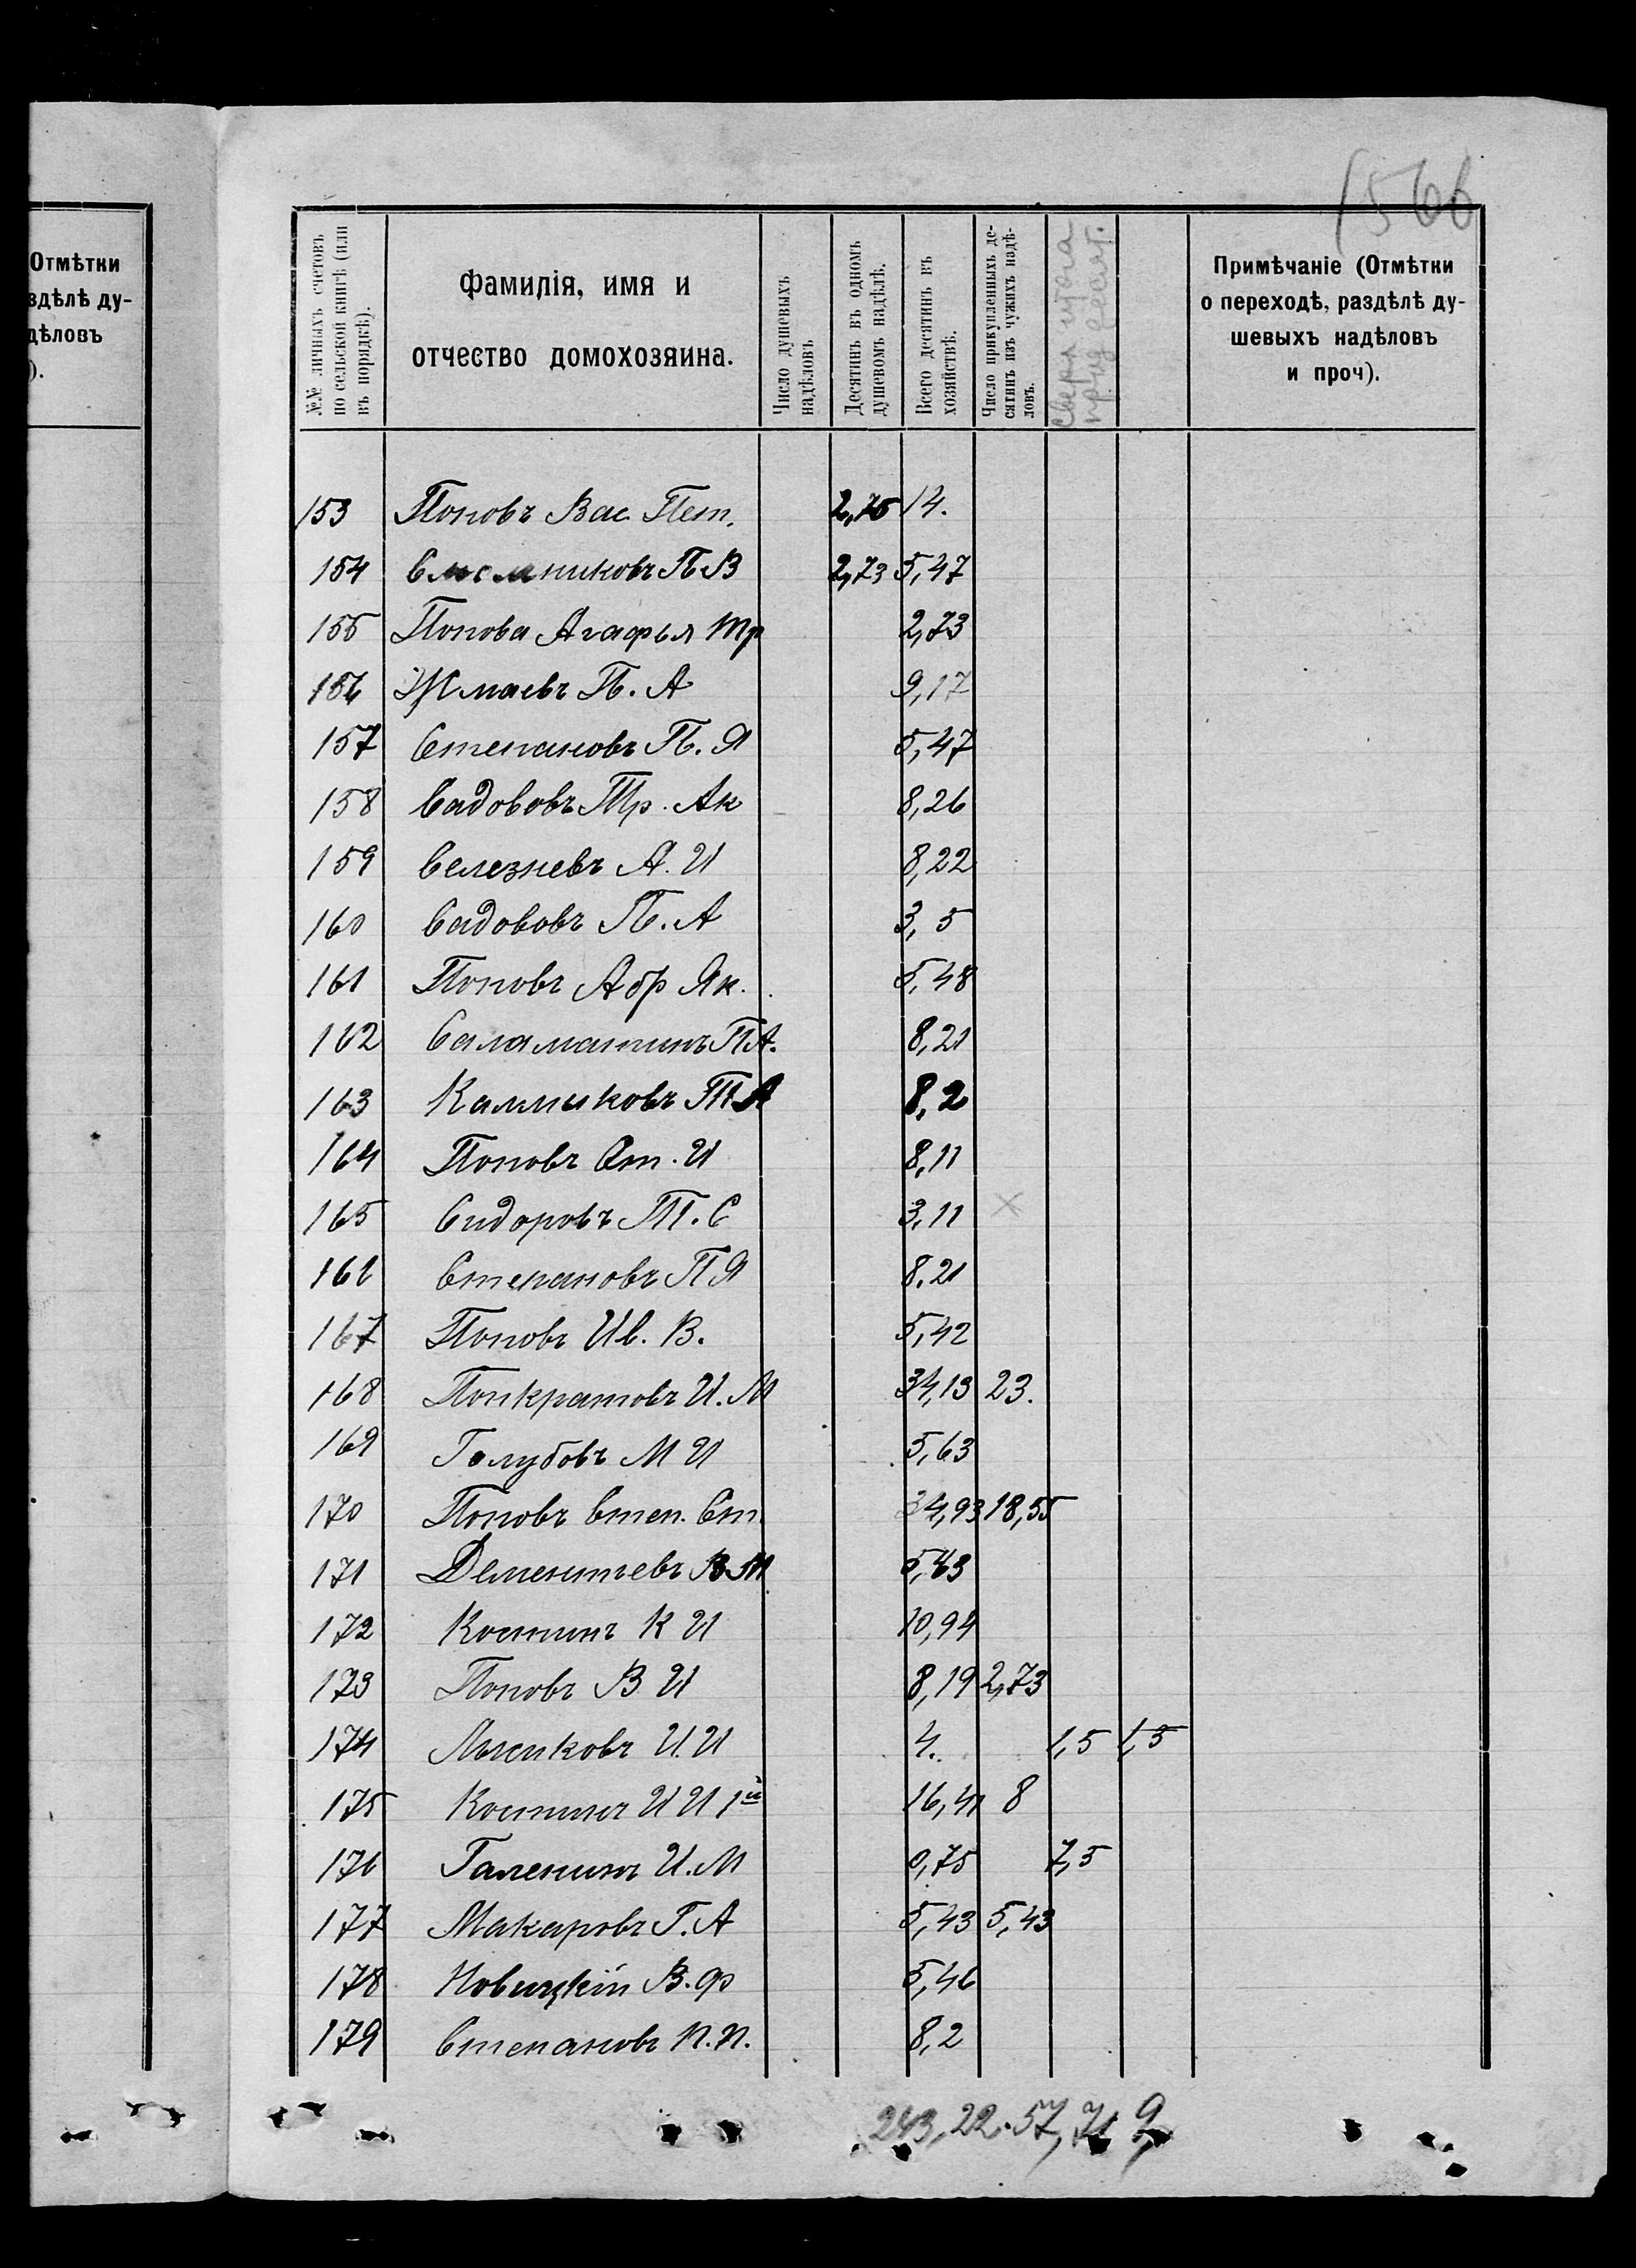 566
Отмѣтки
здѣлѣ ду-
дѣловъ
).
№№ личныхъ счетовъ по сельской книгѣ (или въ порядкѣ).
Фамилія, имя и отчество домохозяина.
Число душевыхъ надѣловъ
Десятинъ въ одномъ душевомъ надѣлѣ.
Всего десятинъ въ хозяйствѣ.
Число прикупленныхъ десятинъ изъ чужихъ надѣловъ.
Сверх итога прид десят.
Примѣчаніе (Отмѣтки о переходѣ, раздѣлѣ душевыхъ надѣловъ и проч).
153 Поповъ Вас. Пет. 2,75 14.
154 П В 2,73 5,47
155 Попова Агафья Тр 2,73
156 Жмаевъ П. А 9,17
157 Степановъ П. Я 5,47
158 Садововъ Тр. Ак 8,26
159 Селезневъ А. И 8,22
160 Садововъ П. А 3,5
161 Поповъ Абр Як. 5,48
162 Саламатинъ П А. 8,21
163 Калмыковъ Т А 8,2
164 Поповъ Ст. И 8,11
165 Сидоровъ Т. С 3,11 ×
166 Степановъ П Я 8,21
167 Поповъ Ив. В. 5,42
168 Понкратовъ И. М 34,13 23.
169 Голубовъ М И 5,63
170 Поповъ Степ. Ст. 34,93 18,55
171 Дементьевъ В М 5,43
172 Костинъ К И 10,94
173 Поповъ В И 8,19 2,73
174 И И 4. 1,5 1,5
175 Костинъ И И 1й 16,41 8
176 Галенинъ И. М 0,75 7,5
177 Макаровъ Г. А 5,43 5,43
178 Новицкій В. Ф 5,46
179 Степановъ П. П. 8,2
243,22. 57,71 9